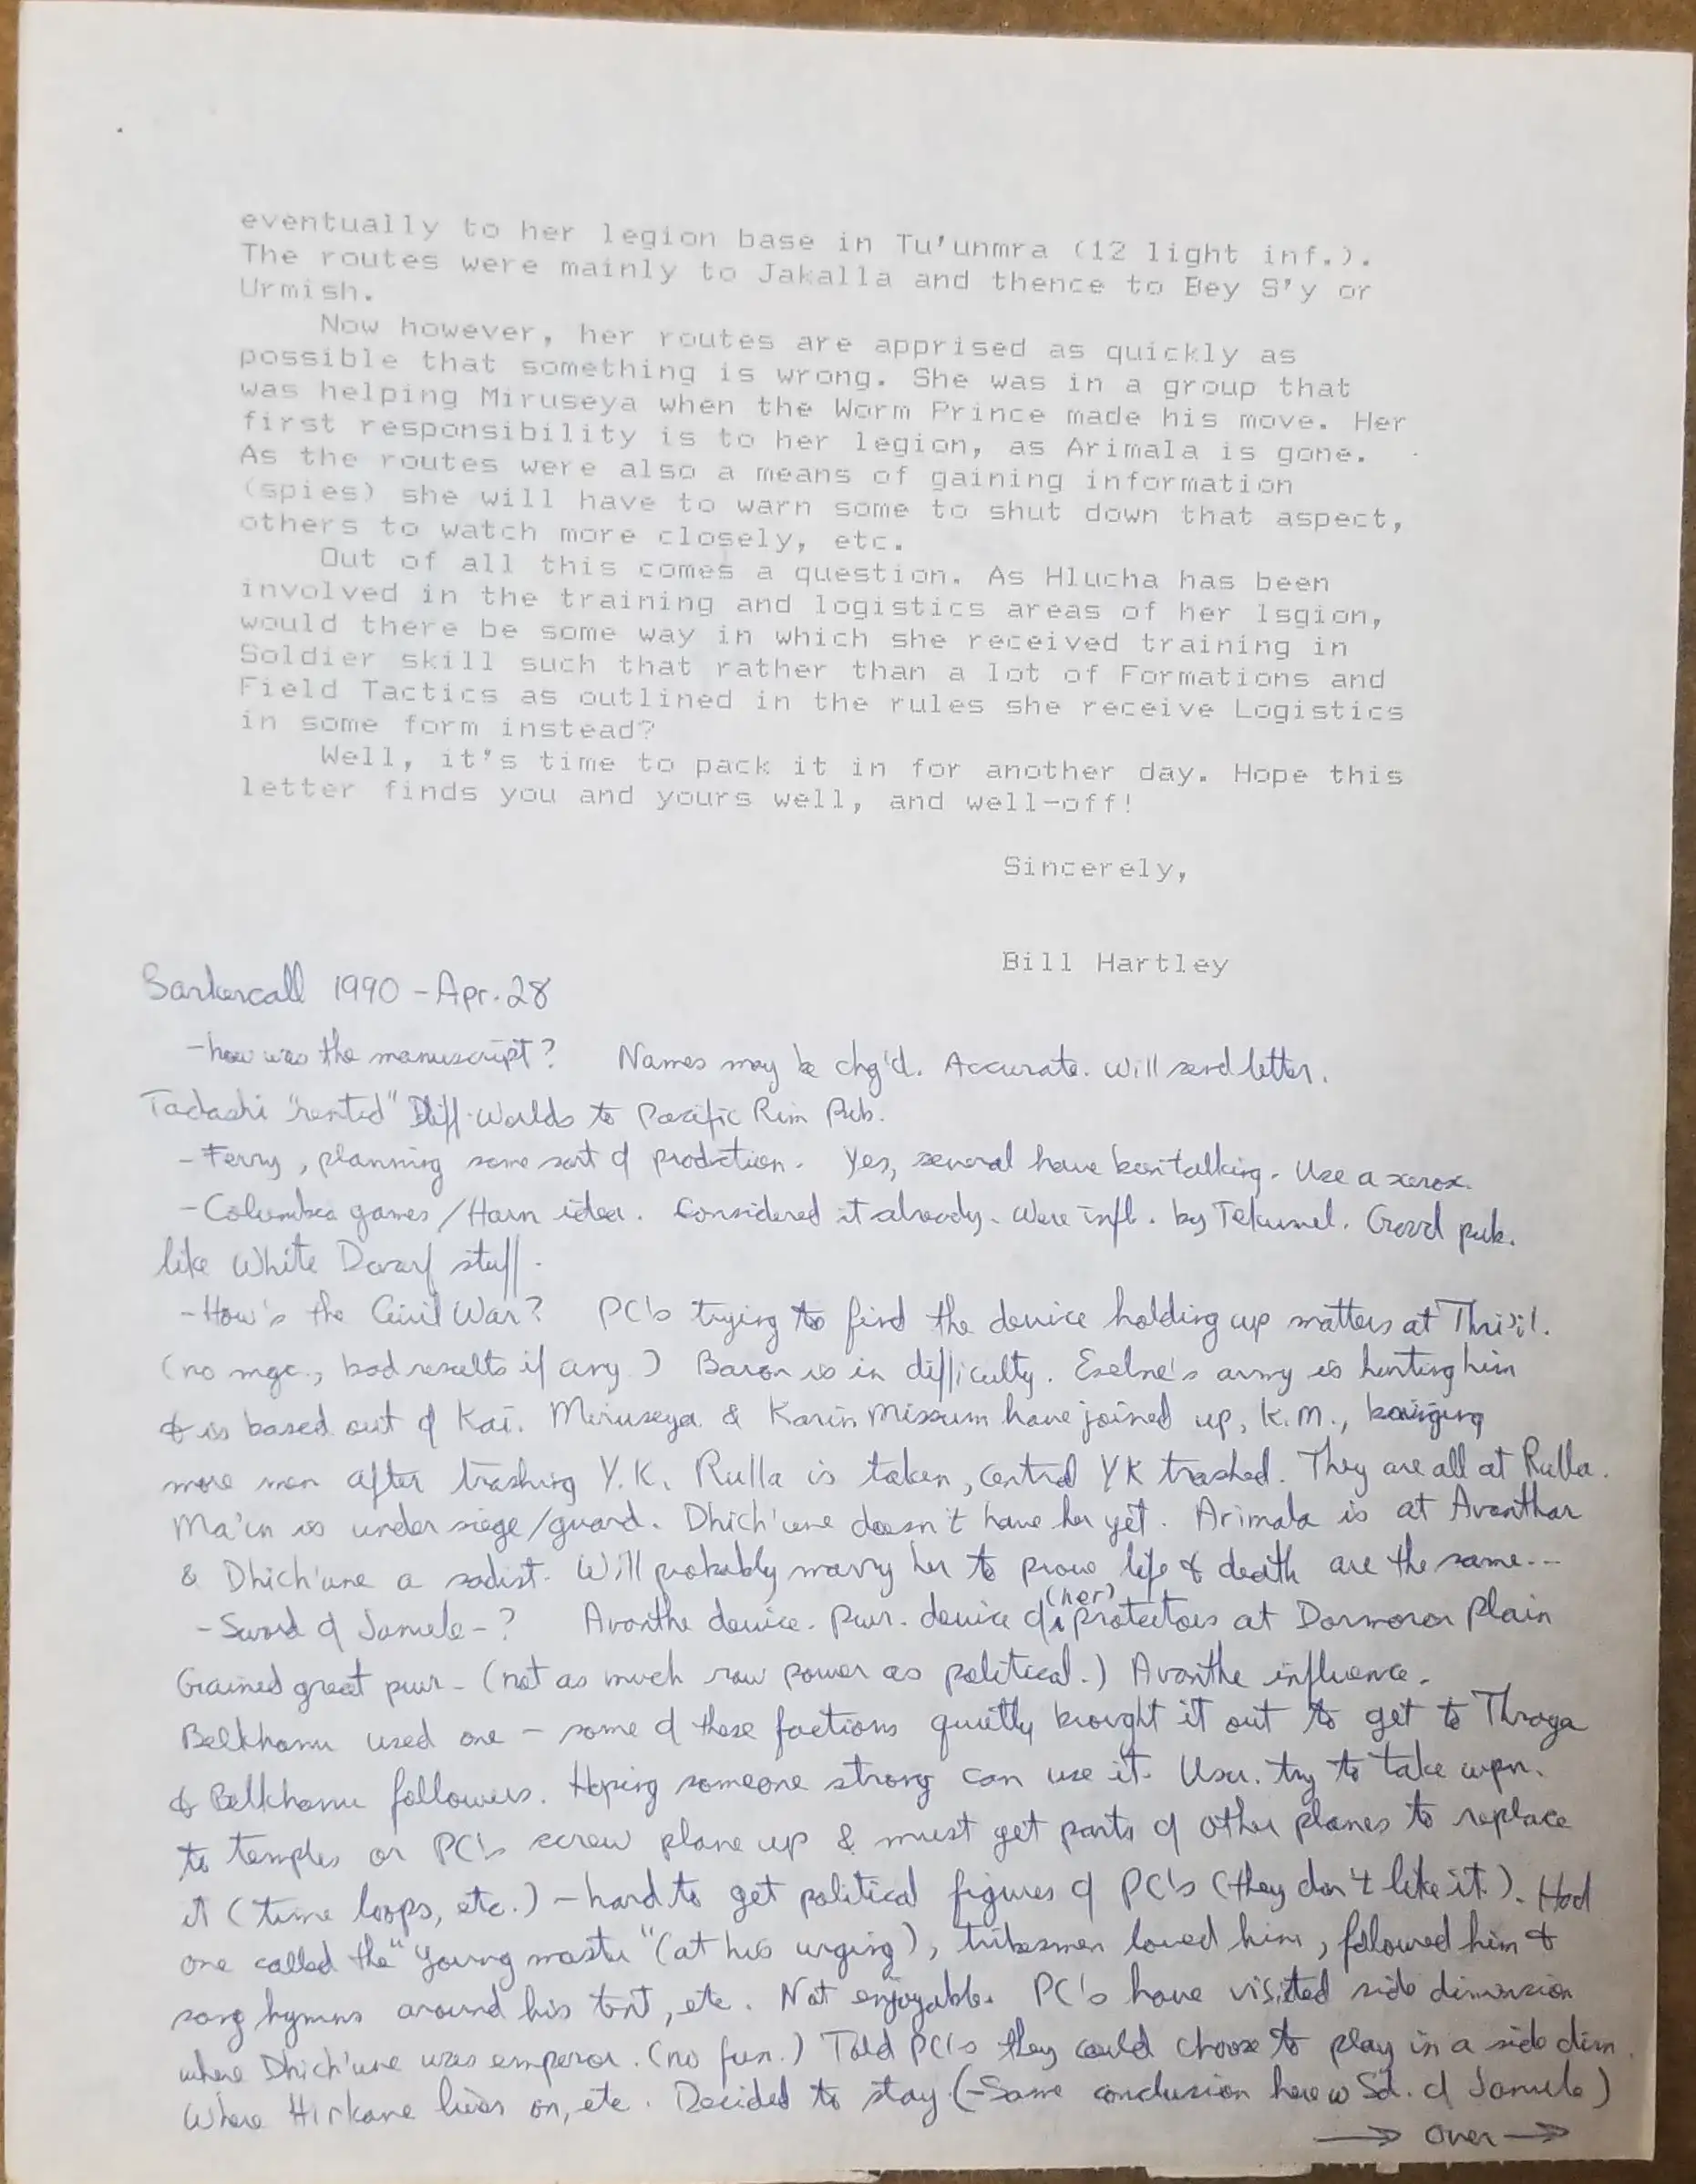 eventually to her legion base in Tu'unmra (12 light inf.).
The routes were mainly to Jakalla and thence to Bey S'y or
Urmish.
Now however, her routes are apprised as quickly as
possible that something is wrong. She was in a group that
was helping Miruseya when the Worm Prince made his move. Her
first responsibility is to her legion, as Arimala is gone.
As the routes were also a means of gaining information
(spies) she will have to warn some to shut down that aspect,
others to watch more closely, etc.
Out of all this comes a question. As Hlucha has been
involved in the training and logistics areas of her lsgion,
would there be some way in which she received training in
Soldier skill such that rather than a lot of Formations and
Field Tactics as outlined in the rules she receive Logistics
in some form instead?
Well, it's time to pack it in for another day. Hope this
letter finds you and yours well, and well-off!
Sincerely,
Bill Hartley
Barkercall 1990 - Apr. 28
- how was the manuscript? Names may be chg'd. Accurate. Will send letter.
Tadashi "rented" Diff. Worlds to Pacific Rim Pub.
- Ferry, planning some sort of production. Yes, several have been talking. Use a xerox.
- Columbia games/Harn idea. Considered it already. Were infl. by Tekumel. Good pub.
like White Dwarf stuff.
- How's the Civil War? PC's trying to find the device holding up matters at Thri'il.
(no mgc., bad results if any) Baron is in difficulty. Eselne's army is hunting him
& is based out of Kai. Miruseya & Karin Missum have joined up, K.M., bringing
more men after trashing Y.K. Rulla is taken, central YK trashed. They are all at Rulla.
Ma'in is under siege/guard. Dhich'une doesn't have her yet. Arimala is at Avanthar
& Dhich'une a sadist. Will probably marry her to prove life & death are the same...
- Sword of Jamule - ? Avanthe device. Pwr. device of (her) protectors at Dormoron Plain
Gained great pwr - (not as much raw power as political.) Avanthe influence.
Belkhanu used one - some of these factions quietly brought it out to get to Thraya
& Belkhanu followers. Hoping someone strong can use it. Usu. try to take wpn.
to temples or PC's screw plane up & must get parts of other planes to replace
it (time loops, etc.) - hard to get political figures of PC's (they don't like it). Had
one called the "Young master" (at his urging), tribesmen loved him, followed him &
sang hymns around his tent, etc. Not enjoyable. PC's have visited side dimension
where Dhich'une was emperor. (no fun.) Told PC's they could choose to play in a side dim.
Where Hirkane lives on, etc. Decided to stay. (-Same conclusion here w Sd. of Jamule)
→ over →